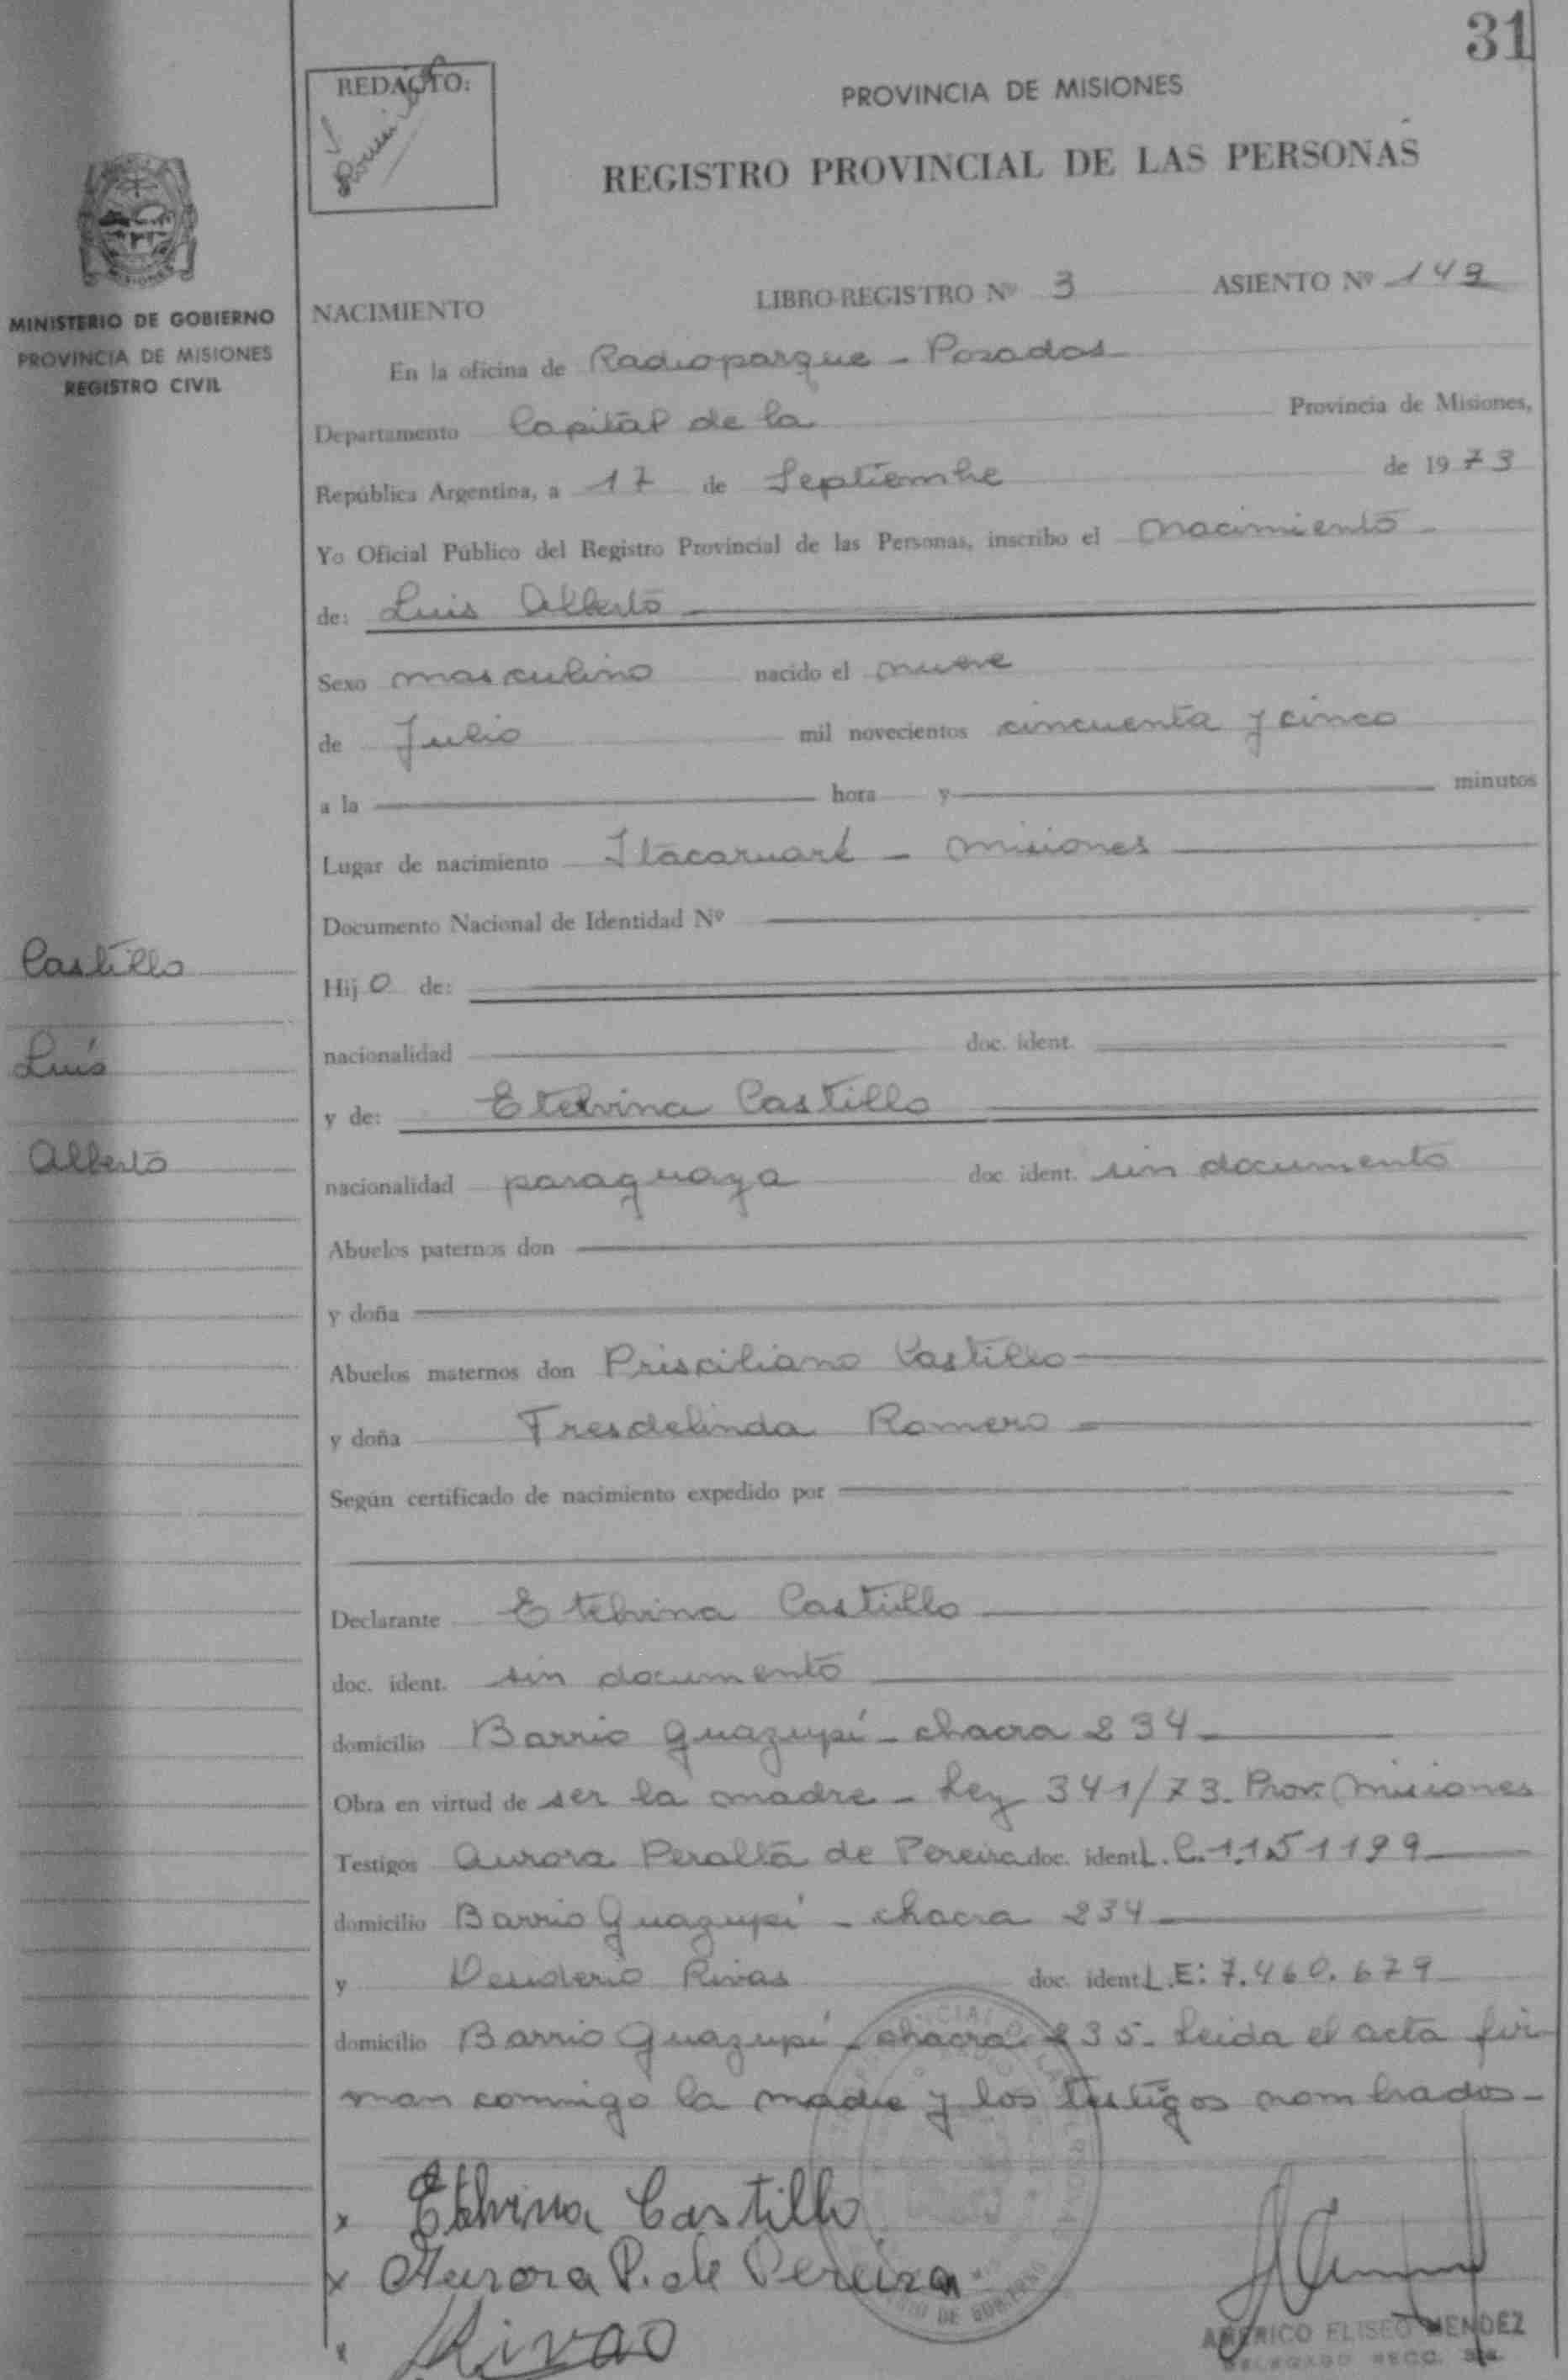 31
REDACTO:
PROVINCIA DE MISIONES
REGISTRO PROVINCIAL DE LAS PERSONAS
MISIONES
MINISTERIO DE GOBIERNO
PROVINCIA DE MISIONES
REGISTRO CIVIL
NACIMIENTO LIBRO-REGISTRO Nº 3 ASIENTO Nº 149
En la oficina de Radioparque - Posadas
Departamento Capital de la Provincia de Misiones,
República Argentina, a 17 de Septiembre de 1973
Yo Oficial Público del Registro Provincial de las Personas, inscribo el nacimiento
de: Luis Alberto
Sexo masculino nacido el nueve
de Julio mil novecientos cincuenta y cinco
a la hora y minutos
Lugar de nacimiento Itacaruaré - Misiones
Documento Nacional de Identidad Nº
Castillo
Hijo de:
Luis
nacionalidad doc. ident.
y de: Etelvina Castillo
Alberto
nacionalidad paraguaya doc. ident. sin documento
Abuelos paternos don
y doña
Abuelos maternos don Prisciliano Castillo
y doña Fresdelinda Romero
Según certificado de nacimiento expedido por
Declarante Etelvina Castillo
doc. ident. sin documento
domicilio Barrio Guazupí - chacra 234
Obra en virtud de ser la madre - Ley 341/73. Prov. Misiones
Testigos Aurora Peralta de Pereira doc. ident. L.C. 1.151199
domicilio Barrio Guazupí - chacra 234
y Desiderio Rivas doc. ident. L.E: 7.460.679
domicilio Barrio Guazupí - chacra 235. Leida el acta fir
man conmigo la madre y los testigos nombrados -
x Etelvina Castillo
x Aurora P. de Pereira
x Rivas
AMERICO ELISEO MENDEZ
DELEGADO SECC.